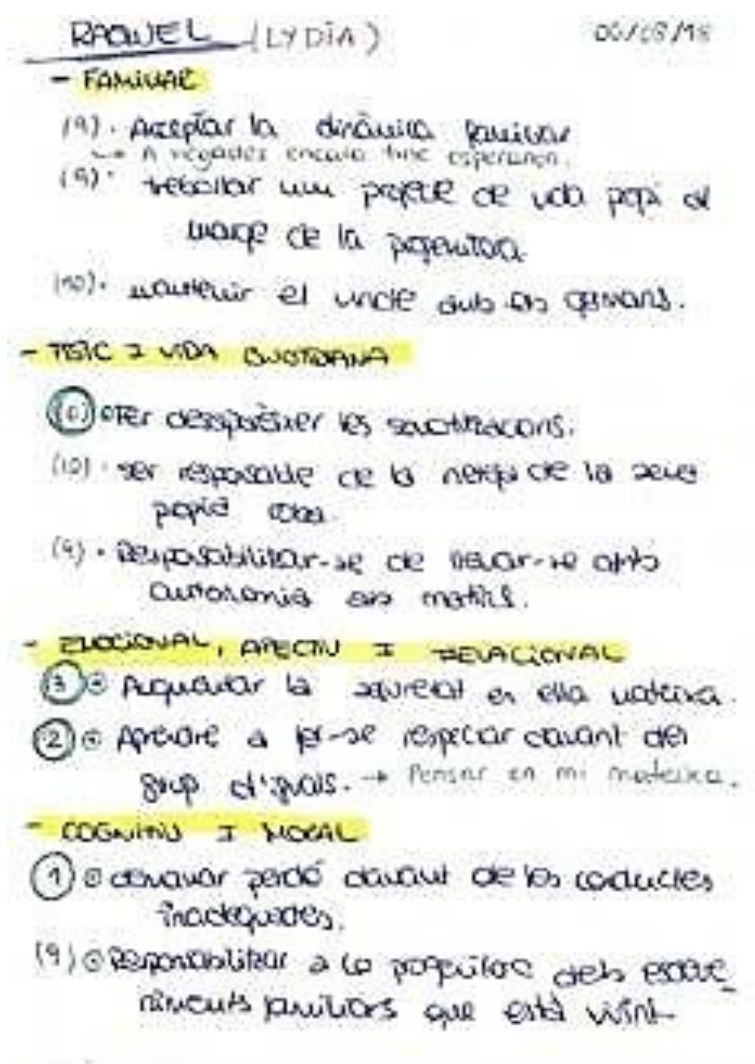 RAQUEL (LYDIA) 06/08/18
- FAMILIAR
(9). Acceptar la dinàmica familiar
↳ A vegades encara tinc esperança.
(9). treballar un projecte de vida propi al
marge de la progenitora.
(10). mantenir el vincle amb els germans.
- FISIC I VIDA QUOTIDIANA
Fer desaparèixer les somatitzacions.
(10). ser responsable de la neteja de la seva
pròpia roba.
(9). Responsabilitzar-se de llevar-se amb
autonomia els matins.
- EMOCIONAL, AFECTIU I RELACIONAL
(3) Augmentar la seguretat en ella mateixa.
(2) Aprendre a fer-se respectar davant del
grup d'iguals. → Pensar en mi mateixa.
- COGNITIU I MORAL
(1) demanar perdó davant de les conductes
inadequades.
(9) Responsabilitzar a la progenitora dels esdeve_
niments familiars que està vivint